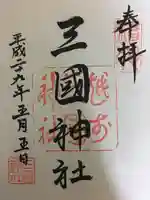 奉拝
越前
三國神社
平成二九年五月五日